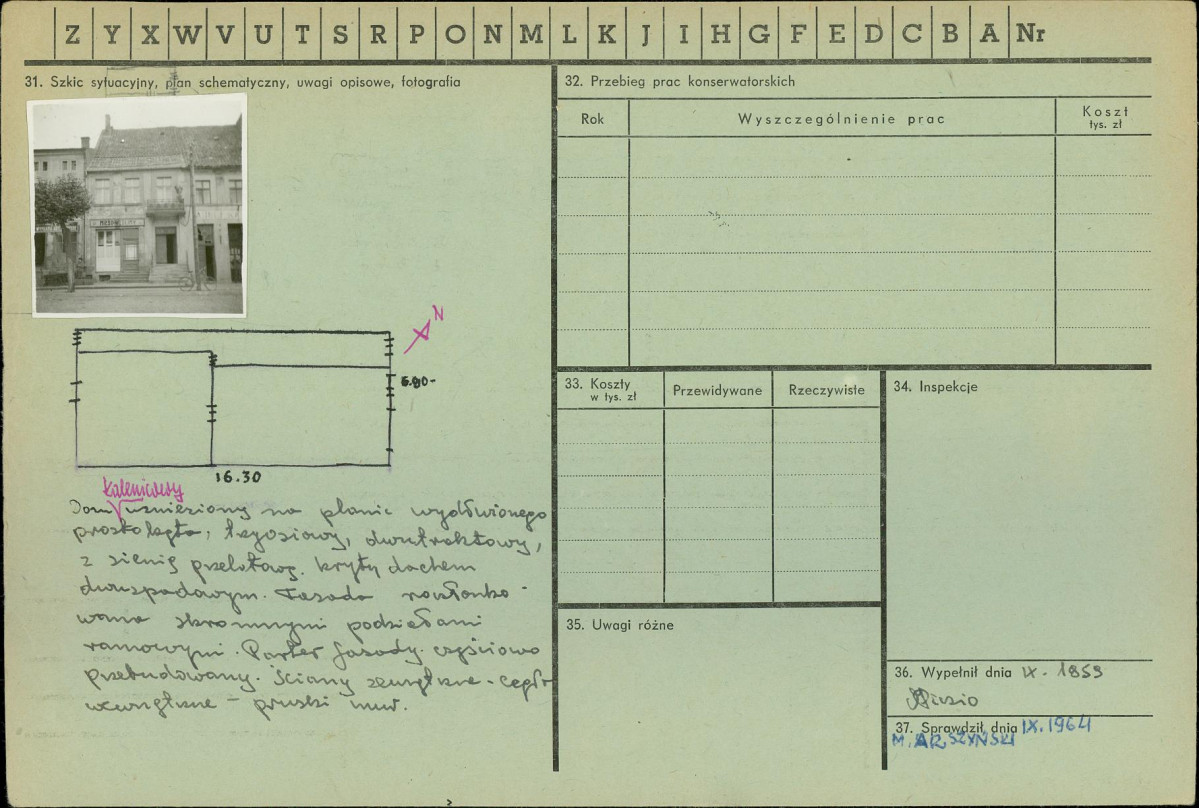 Z Y X W V U T S R P O N M L K J I H G F E D C B A Nr
31. Szkic sytuacyjny, plan schematyczny, uwagi opisowe, fotografia
N
6.90-
16.30
kalenicowy
Dom wzniesiony na planie wydłużonego
prostokąta, trzyosiowy, dwutraktowy,
z sienią przelotową. kryty dachem
dwuspadowym. Fasada rozczłonko-
wana skromnymi podziałami
ramowymi. Parter fasady częściowo
przebudowany. Ściany zewnętrzne - cegła
wewnętrzne - pruski mur.
32. Przebieg prac konserwatorskich
Rok
Wyszczególnienie prac
Koszt
tys. zł
33. Koszty
w tys. zł
Przewidywane
Rzeczywiste
34. Inspekcje
35. Uwagi różne
36. Wypełnił dnia IX. 1959
37. Sprawdził dnia IX.1964
M. ARSZYŃSKI